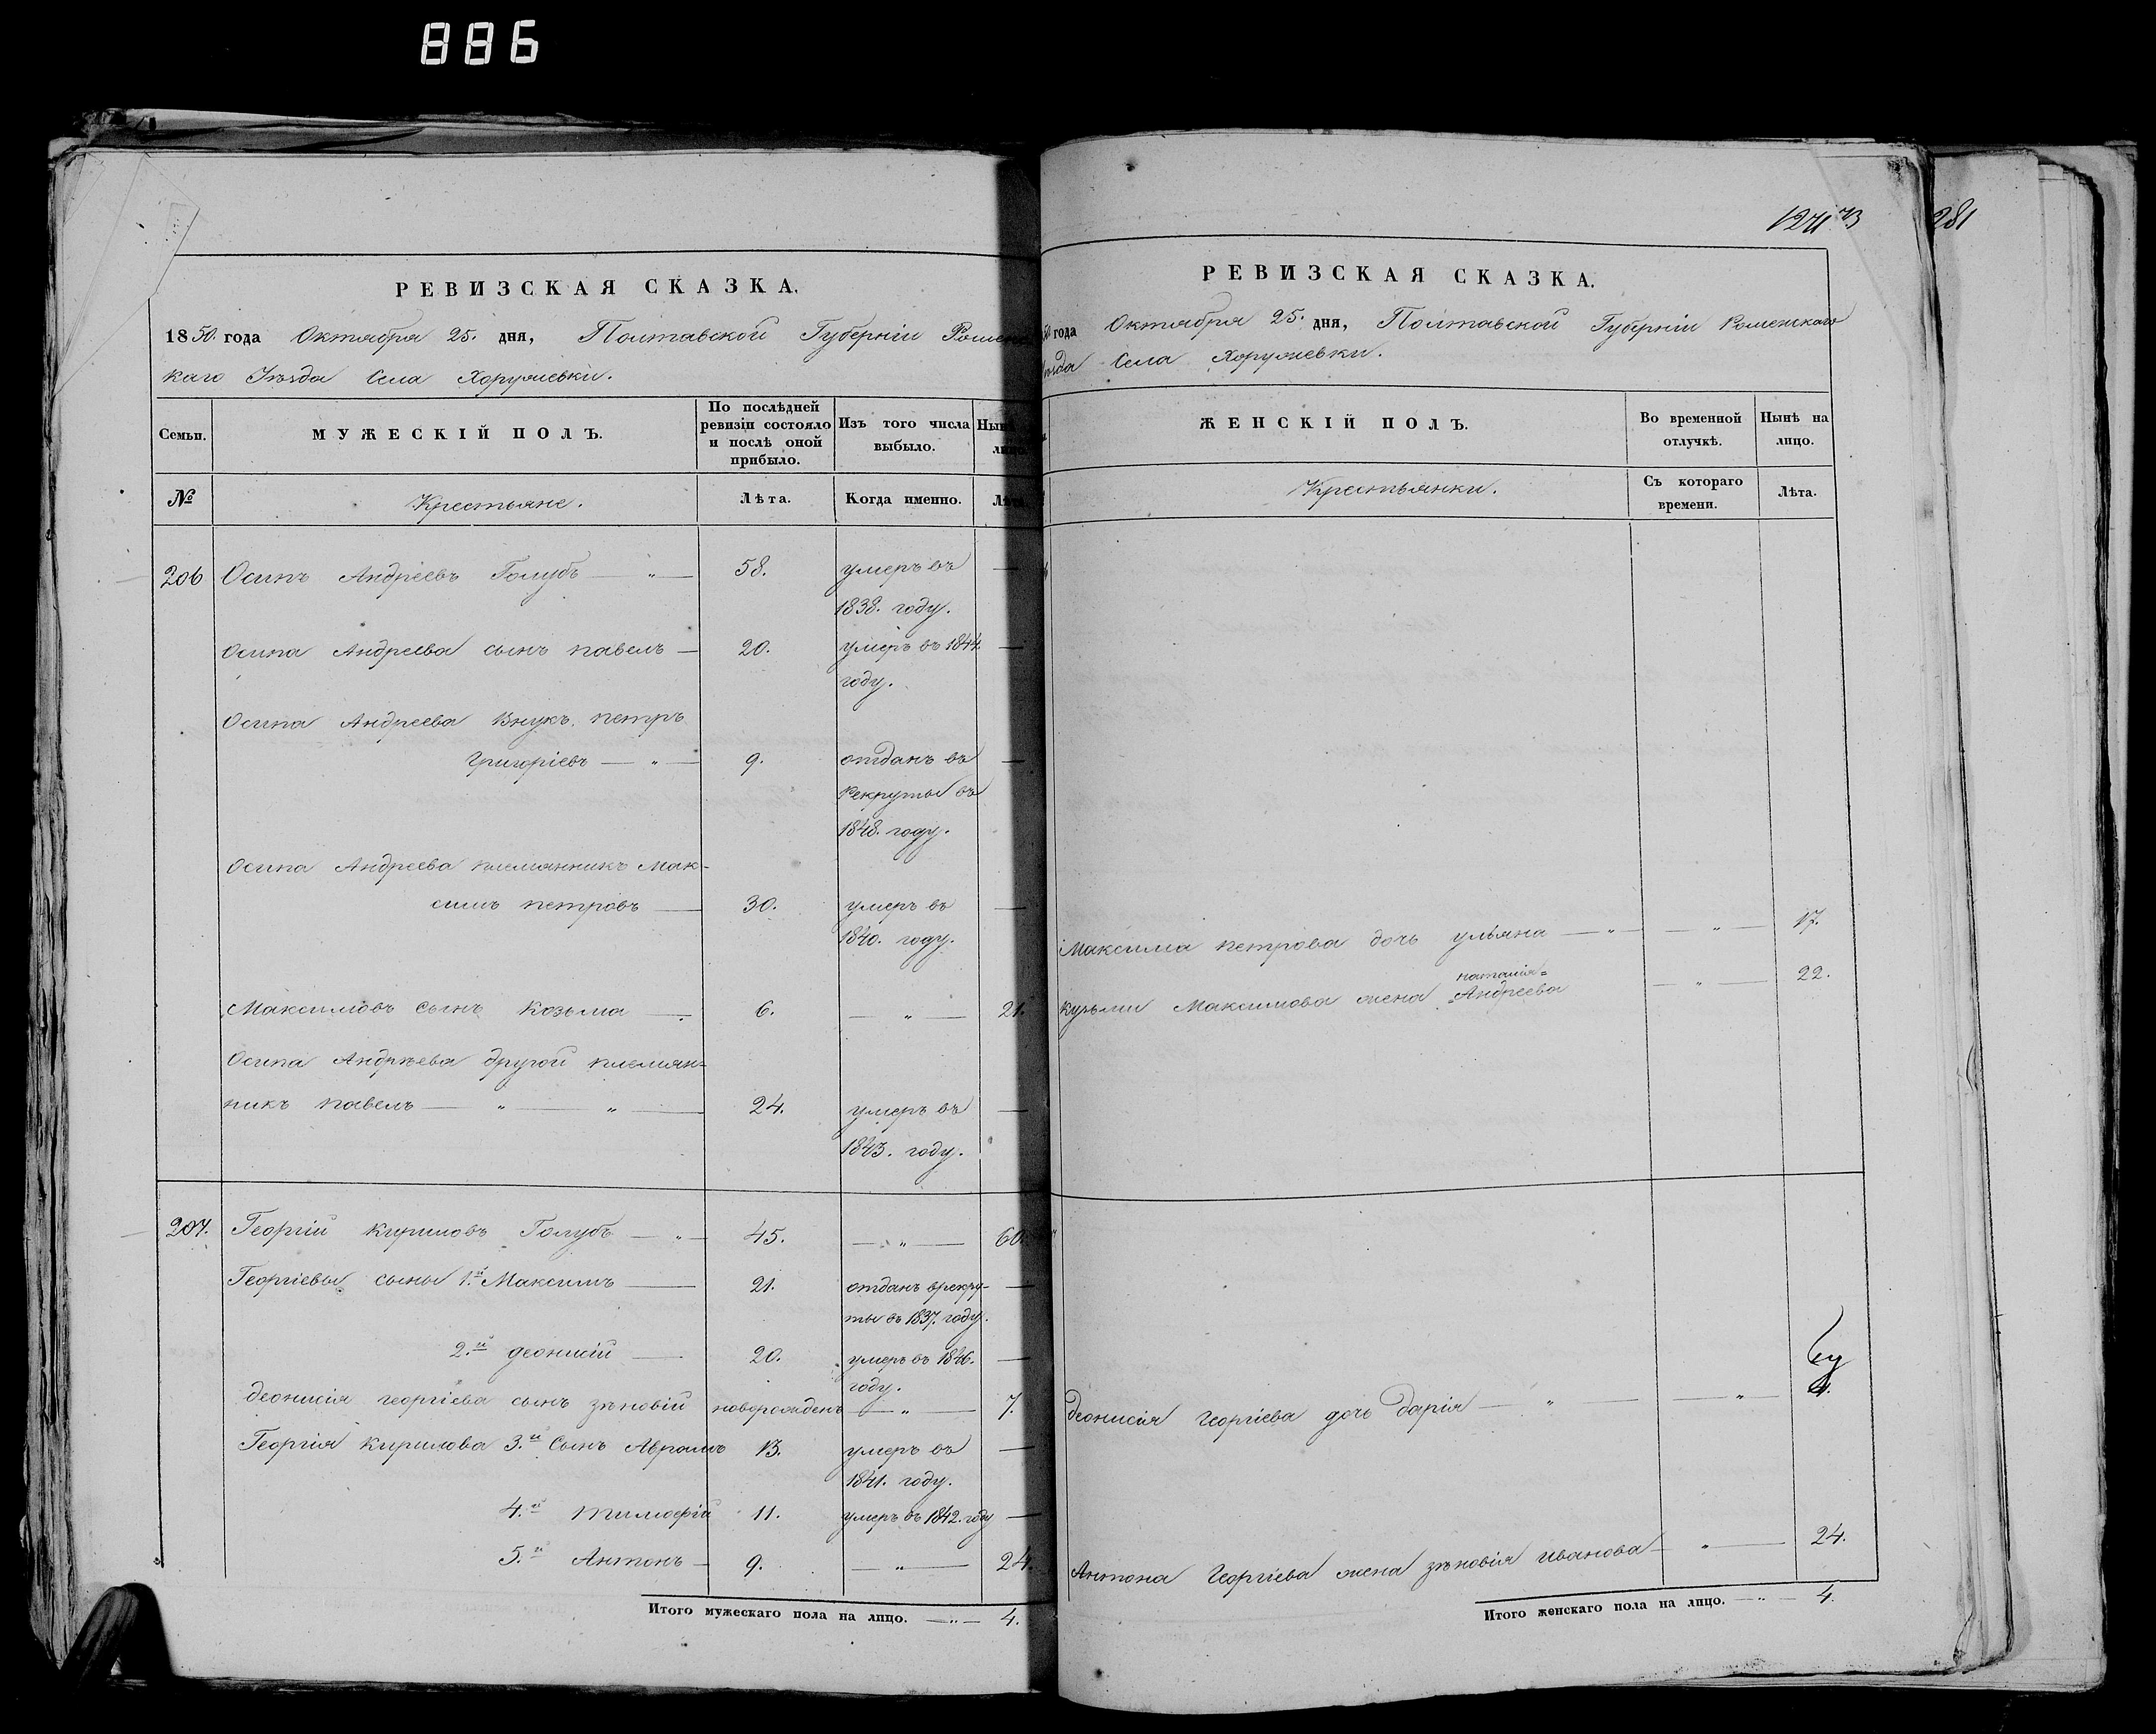 886
РЕВИЗСКАЯ СКАЗКА.
1850. года Октября 25. дня, Полтавской Губерніи Роменс
каго Уѣзда Села Хоружевки.
Семьи.
МУЖЕСКІЙ ПОЛЪ.
По послѣдней ревизіи состояло и послѣ оной прибыло.
Изъ того числа выбыло.
Нынѣ лицо
№
Крестьяне.
Лѣта.
Когда именно.
Лѣта
206 Осипъ Андреевъ Голубъ — „ — 58. умеръ въ —
1838. году.
Осипа Андреева сынъ павелъ — 20. умеръ въ 1844. —
году.
Осипа Андреева Внукъ петръ
Григоріевъ — „ — 9. отданъ въ —
Рекруты въ
1848. году.
Осипа Андреева племянникъ Мак-
симъ петровъ — 30. умеръ въ —
1840. году.
Максимовъ Сынъ Козьма — 6. — „ — 21.
Осипа Андрѣева другой племян-
никъ павелъ — „ — „ — 24. умеръ въ —
1843. году.
207. Георгій Кириловъ Голубъ — „ — 45. — „ — 60.
Георгіевы сыны 1.й Максимъ — 21. отданъ врекру- —
ты въ 1837. году.
2.й деонисій — 20. умеръ въ 1846. —
году.
деонисія георгіева сынъ зѣновій новорожденъ — „ — 7.
Георгія Кирилова 3.й Сынъ Аврамъ 13. умеръ въ —
1841. году.
4.й тимофій 11. умеръ въ 1842. году —
5.й Антонъ — 9. — „ — 24.
Итого мужескаго пола на лицо. — „ — 4.
281
РЕВИЗСКАЯ СКАЗКА.
года Октября 25. дня, Полтавской Губерніи Роменскаго
ѣзда Села Хоружевки.
ЖЕНСКІЙ ПОЛЪ.
Во временной отлучкѣ.
Нынѣ на лицо.
Крестьянки.
Съ котораго времени.
Лѣта.
Максима петрова дочь ульяна — „ — — „ — 17.
наталія=
кузьми Максимова жена Андреева — „ — 22.
деонисія Георгіева дочь дарія — „ — — „ —
Антона Георгіева жена зѣновія иванова — „ — 24.
Итого женскаго пола на лицо. — „ — 4.